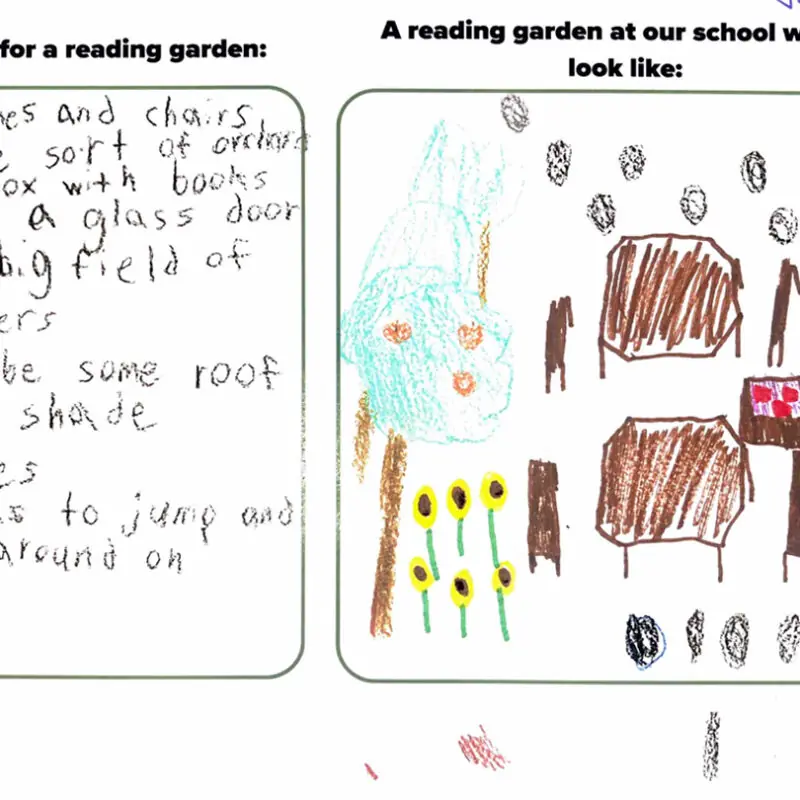 for a reading garden:
es and chairs,
e sort of orchard
ox with books
a glass door
big field of
ers
be some roof
shade
es
s to jump and
around on
A reading garden at our school w
look like: